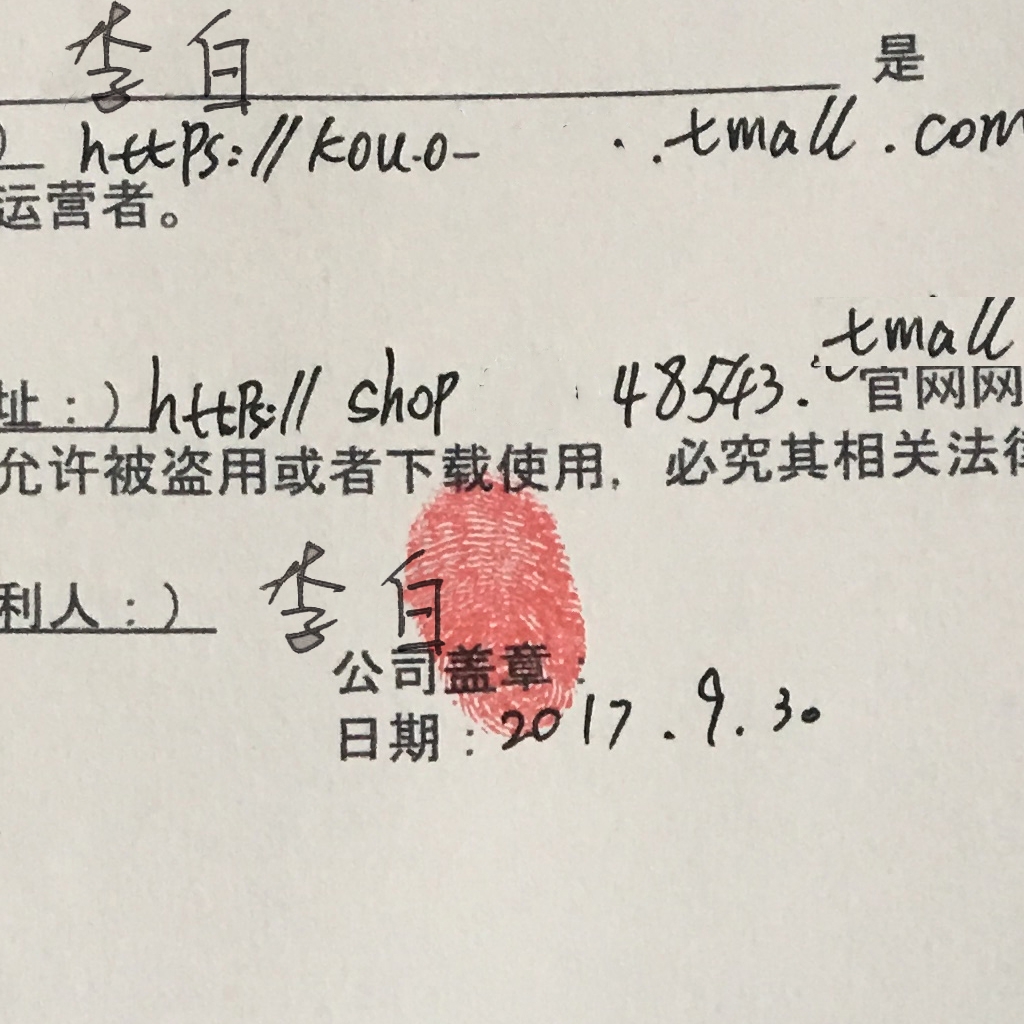 李白 是
) https://kou.o- ..tmall.com
运营者。
tmall
址：) https:// shop 48543. 官网网
允许被盗用或者下载使用，必究其相关法律
利人：) 李白
公司盖章：
日期：2017.9.30